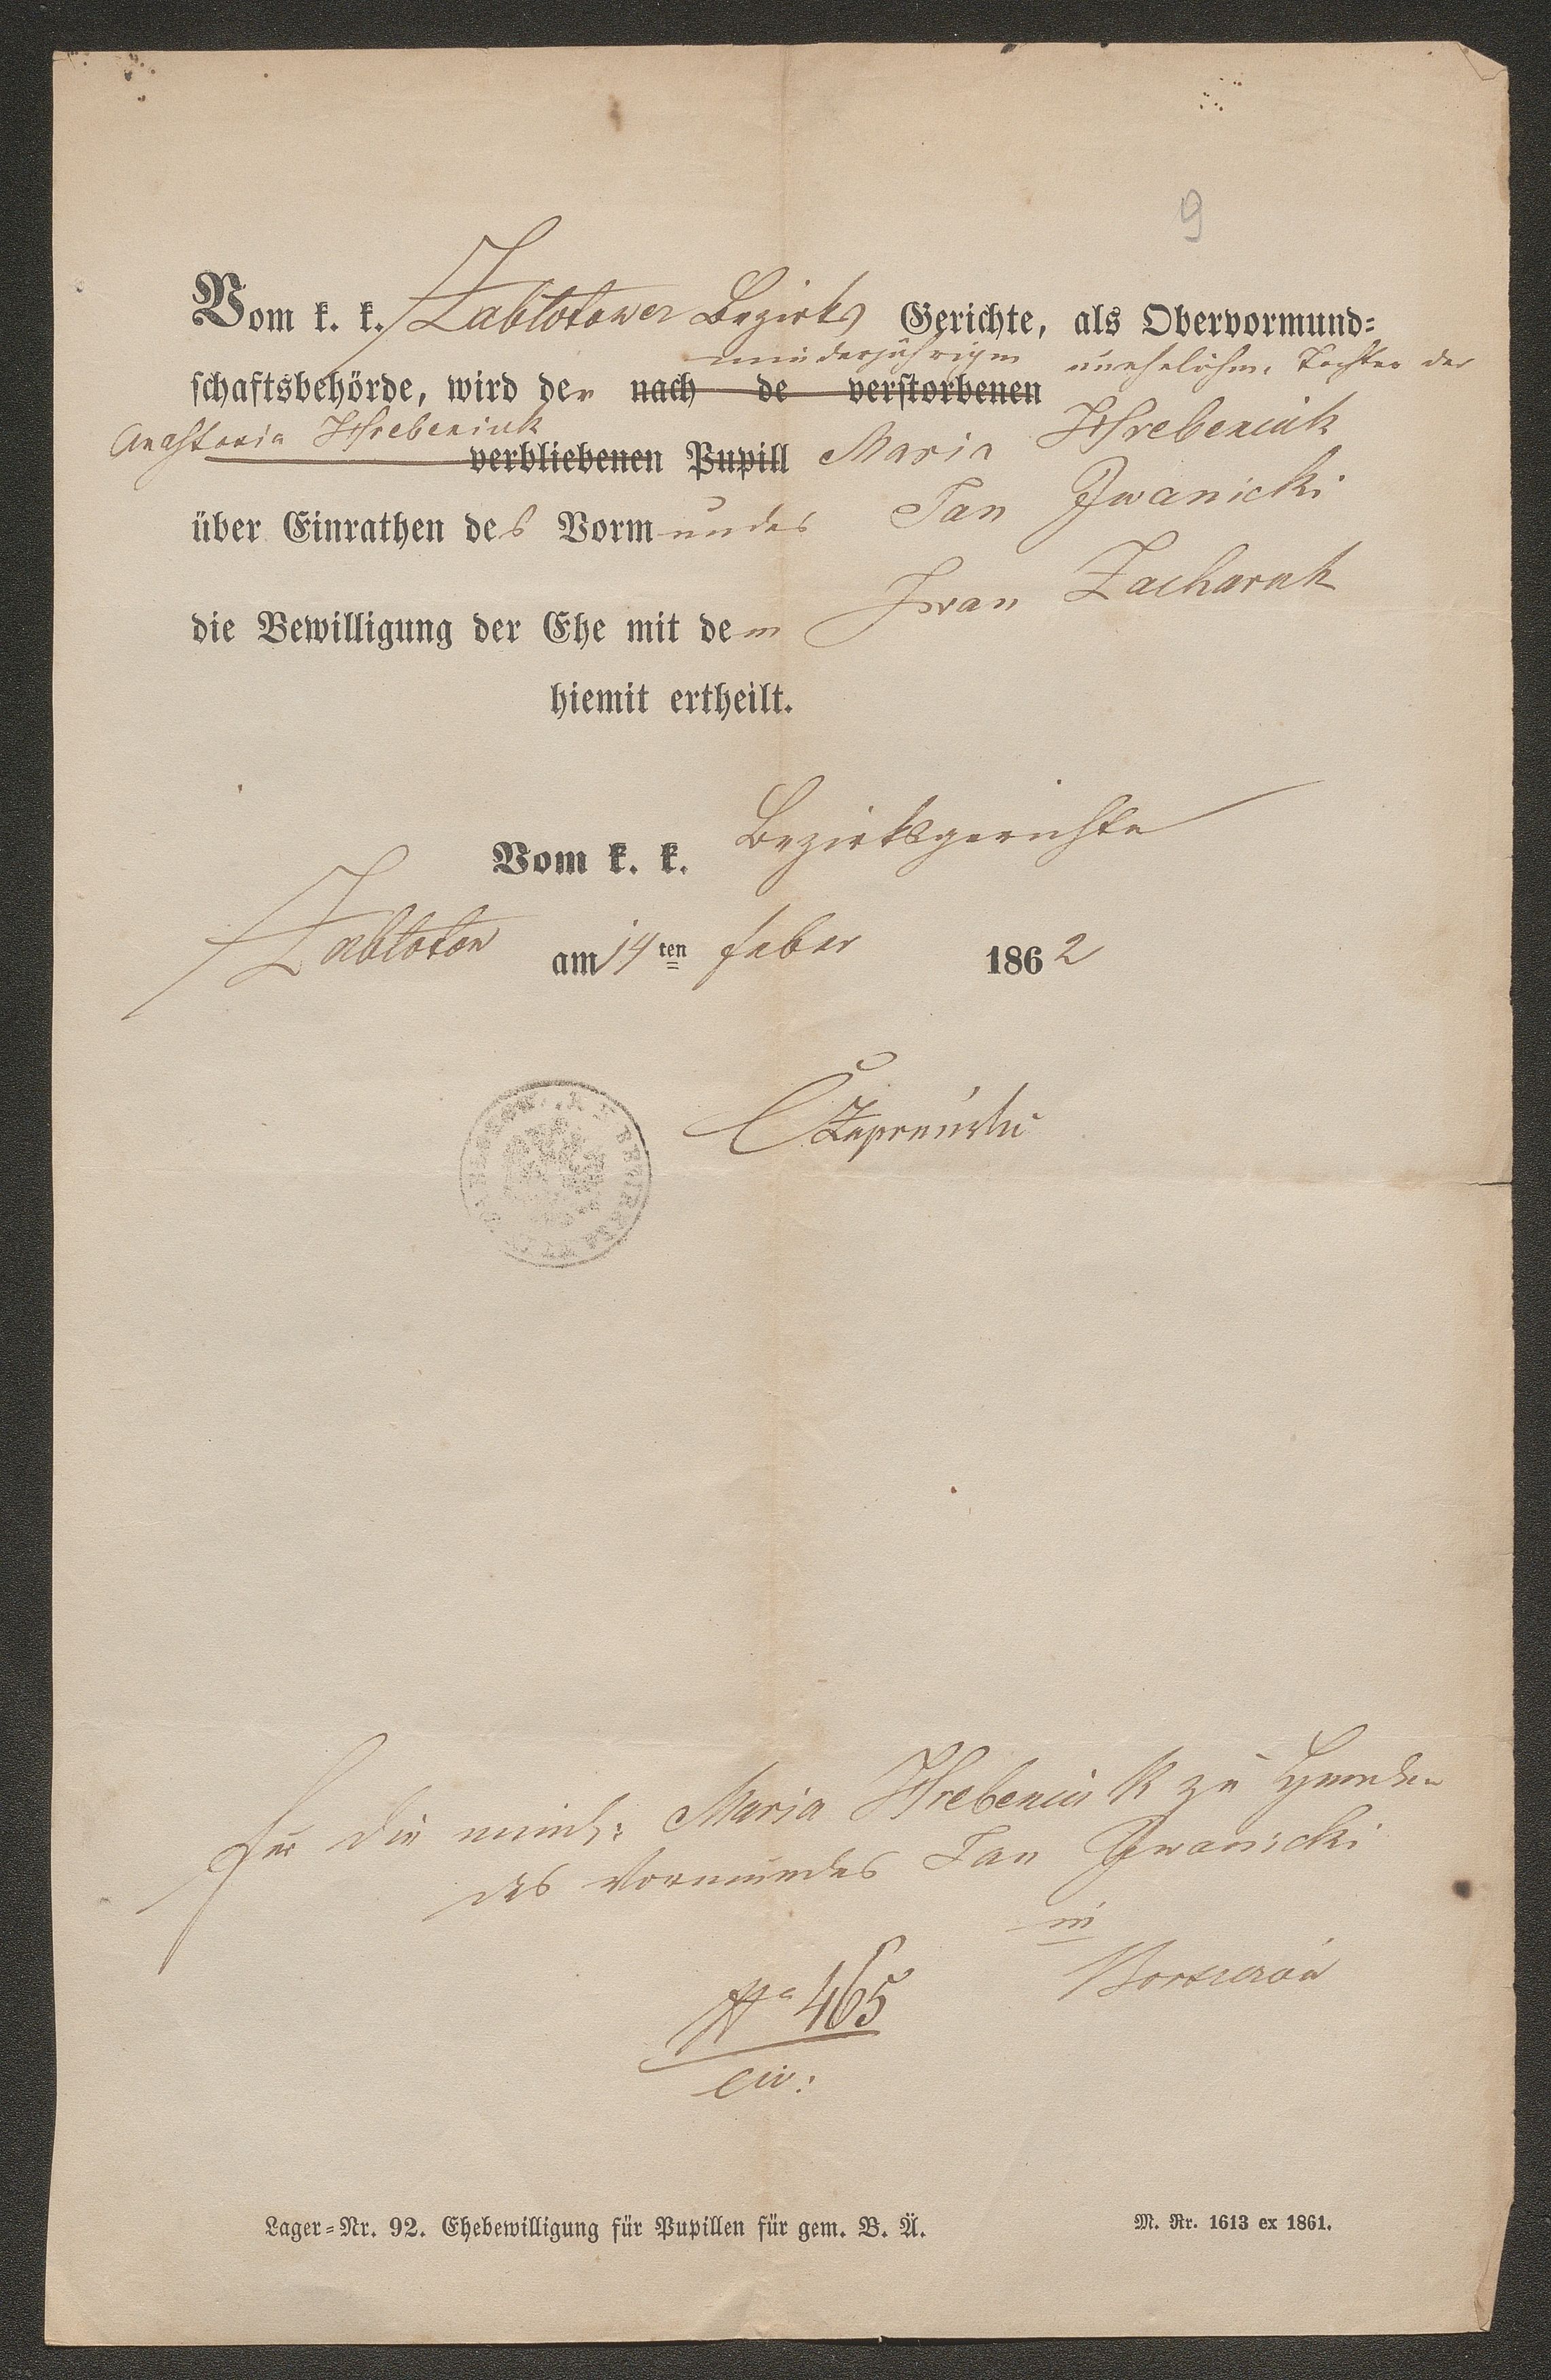 9
Vom k. k. Zablotower Bezirks Gerichte, als Obervormund=
minderjährigen unehelichen Tochter der
schaftsbehörde, wird der nach de verstorbenen
Anastasia Hrebeniuk
verbliebenen Pupill Maria Hrebeniuk
über Einrathen des Vormundes Jan Iwanicki
die Bewilligung der Ehe mit dem Iwan Zacharuk
hiemit ertheilt.
Vom k. k. Bezirksgerichte
Zablotow am 14ten Feber 1862
Für die mind: Maria Hrebeniuk zu Handen
des Vormundes Jan Iwanicki
in
No 465
civ:
Lager=Nr. 92. Ehebewilligung für Pupillen für gem. B. Ä.
M. Nr. 1613 ex 1861.